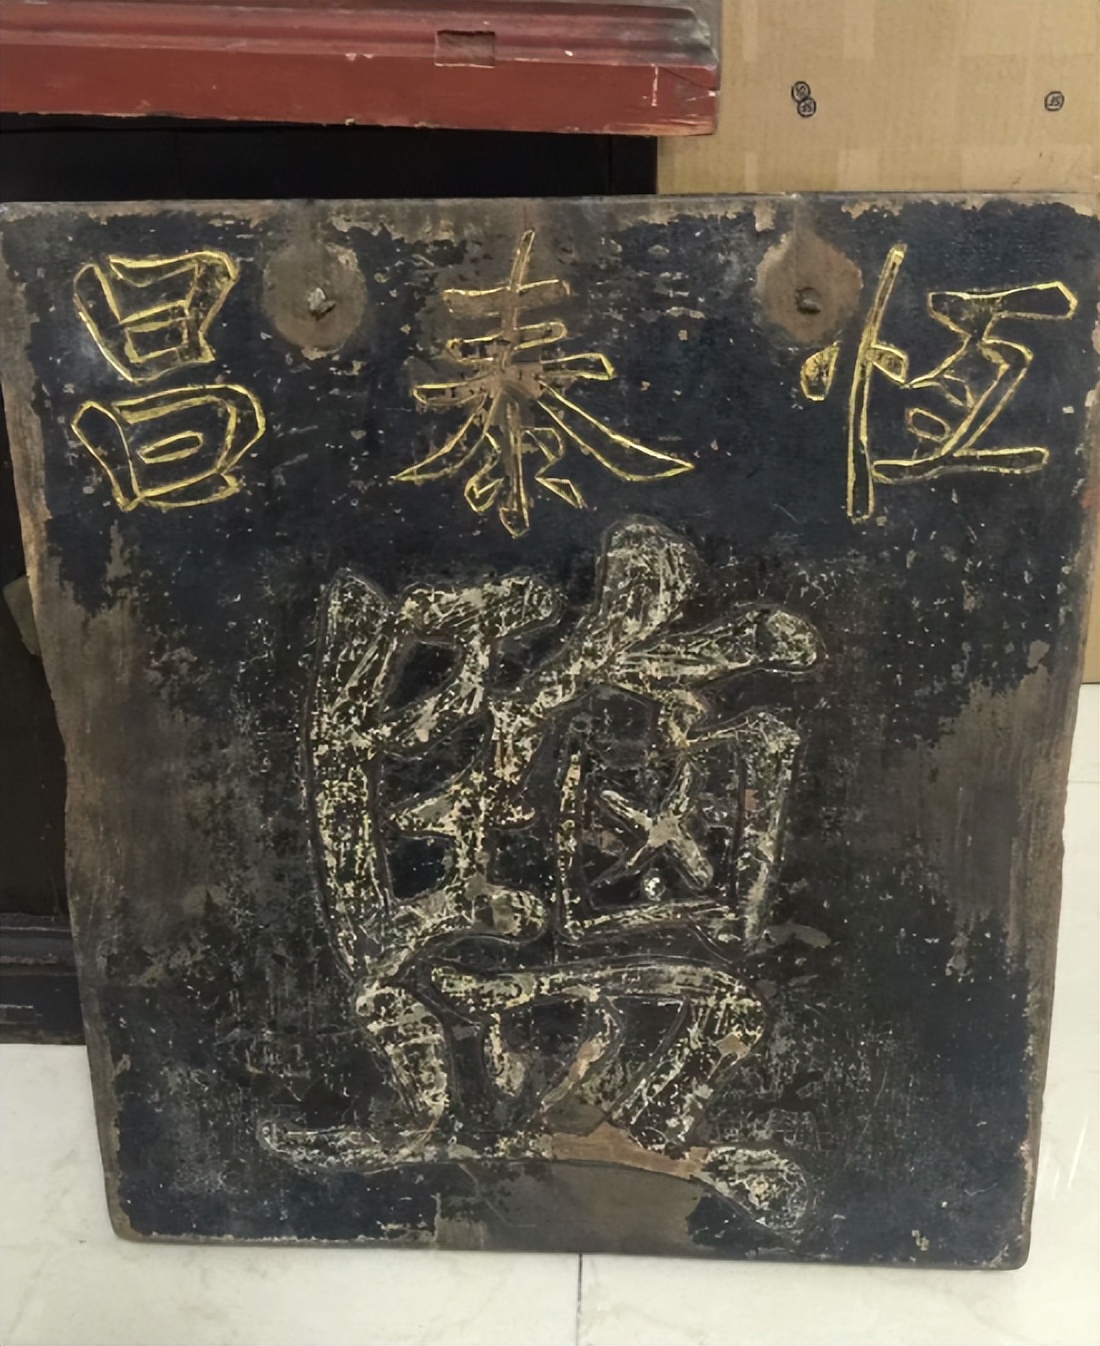 恆泰昌
鹽